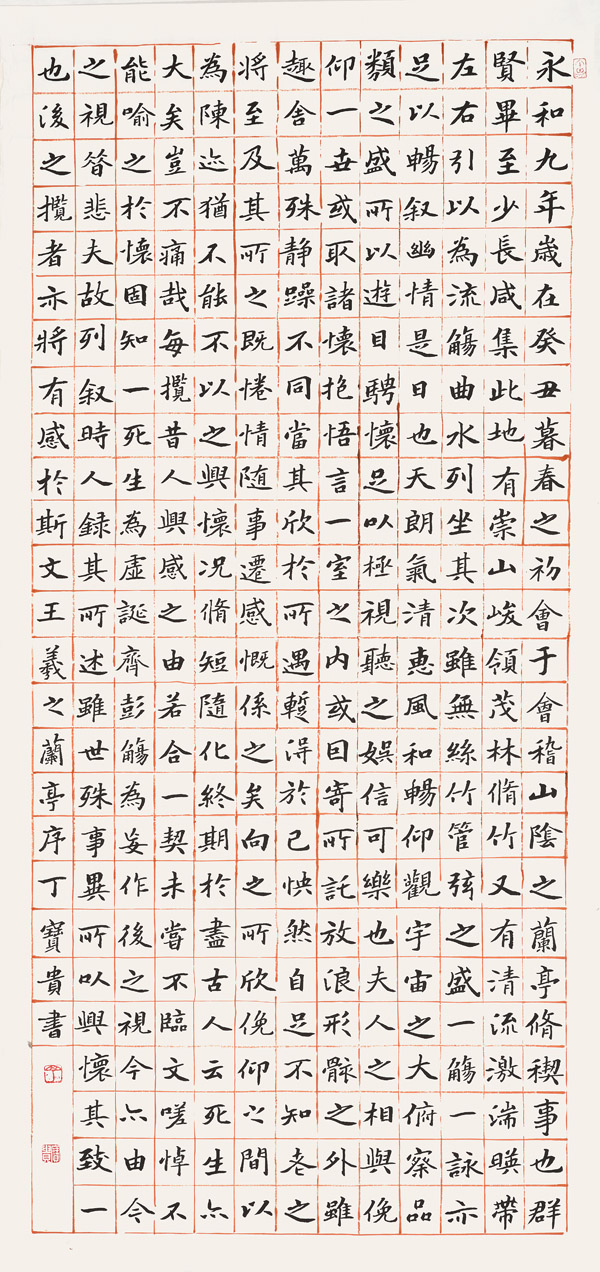 永和九年歲在癸丑暮春之初會于會稽山陰之蘭亭脩稧事也群
賢畢至少長咸集此地有崇山峻領茂林脩竹又有清流激湍暎帶
左右引以為流觴曲水列坐其次雖無絲竹管弦之盛一觴一詠亦
足以暢叙幽情是日也天朗氣清惠風和暢仰觀宇宙之大俯察品
類之盛所以遊目騁懷足以極視聽之娛信可樂也夫人之相與俛
仰一世或取諸懷抱悟言一室之内或因寄所託放浪形骸之外雖
趣舍萬殊静躁不同當其欣於所遇蹔得於己怏然自足不知老之
將至及其所之既惓情随事遷感慨係之矣向之所欣俛仰之間以
為陳迹猶不能不以之興懷况脩短隨化終期於盡古人云死生亦
大矣豈不痛哉每攬昔人興感之由若合一契未嘗不臨文嗟悼不
能喻之於懷固知一死生為虛誕齊彭觴為妄作後之視今亦由今
之視昔悲夫故列叙時人録其所述雖世殊事異所以興懷其致一
也後之攬者亦將有感於斯文王羲之蘭亭序丁寶貴書